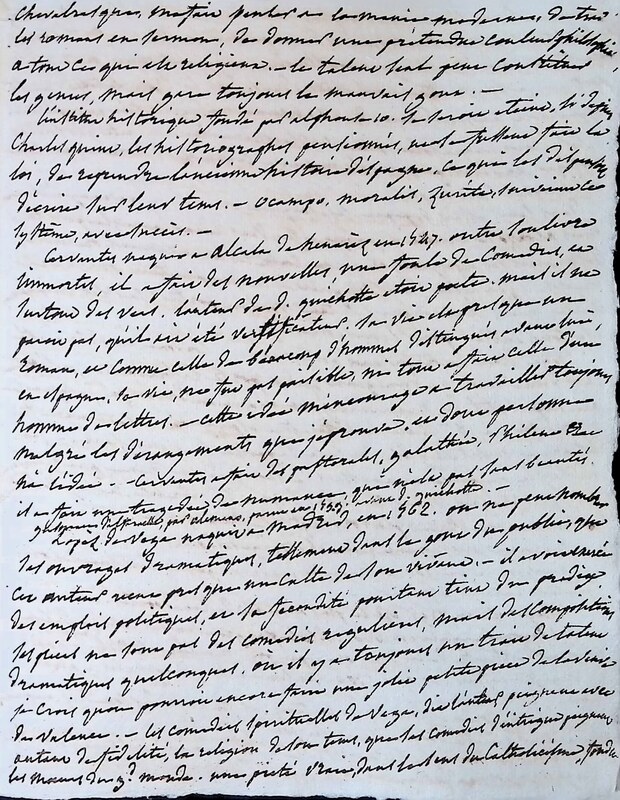 chevaleresques, mais faire penser a la maniere moderne, de
les romans en sermon, de donner une pretendue couleur philosophi
a tout ce qui est religieux. - le talent seul peut constituer
les genres, mais gare toujours le mauvais gout. -
l'institut historique fondé par alphonse 10. se seroit eteint, si depuis
Charles quint, les historiographes pensionnés, ne se fussent fait la
loi, de reprendre l'ancienne histoire d'espagne, ce qui les dispense
d'ecrire sur leur tems. - ocampo, moralès, zurita, suivirent ce
systême, avec succès. -
Cervantes naquit a Alcala de henarès en 1547. outre son livre
immortel, il a fait des nouvelles, une foule de Comedies, et
surtout des vers. l'auteur de d. quichotte etoit poete, mais il ne
paroit pas, qu'il ait été versificateur. sa vie est presque un
roman, et comme celle de beaucoup d'hommes distingués avant lui,
en espagne, sa vie, ne fut pas paisible ni tout a fait celle d'un
homme de lettres. - cette idée m'encourage a travailler toujours
malgré les dérangements que j'eprouve, et dont personne
n'a l'idée. - Cervantes a fait des pastorales, galathée, Philene &c
il a fait une tragedie de numance, qui n'est pas sans beautés.
parut en 1599, avant d. quichotte. -
Lopez de Vega naquit a Madrid, en 1562. on ne peut nombrer
ses ouvrages dramatiques, tellement dans le gout du public, que
cet auteur recut presque un culte de son vivant. - il avoit
des emplois politiques, et sa fecondité pourtant tint du prodige
ses pieces ne sont pas des comedies regulieres, mais des compositions
dramatiques quelconques, où il y a toujours un trait de talent
je crois qu'on pourroit encore faire une jolie petite piece de la
de valence. - les comedies spirituelles de Vega, dit l'auteur peignent avec
autant de fidelité, la religion de son tems, que les comedies d'intrigue peignent
les mœurs du gd. monde. une pieté vraie, dans le sens du Catholicisme, fondée